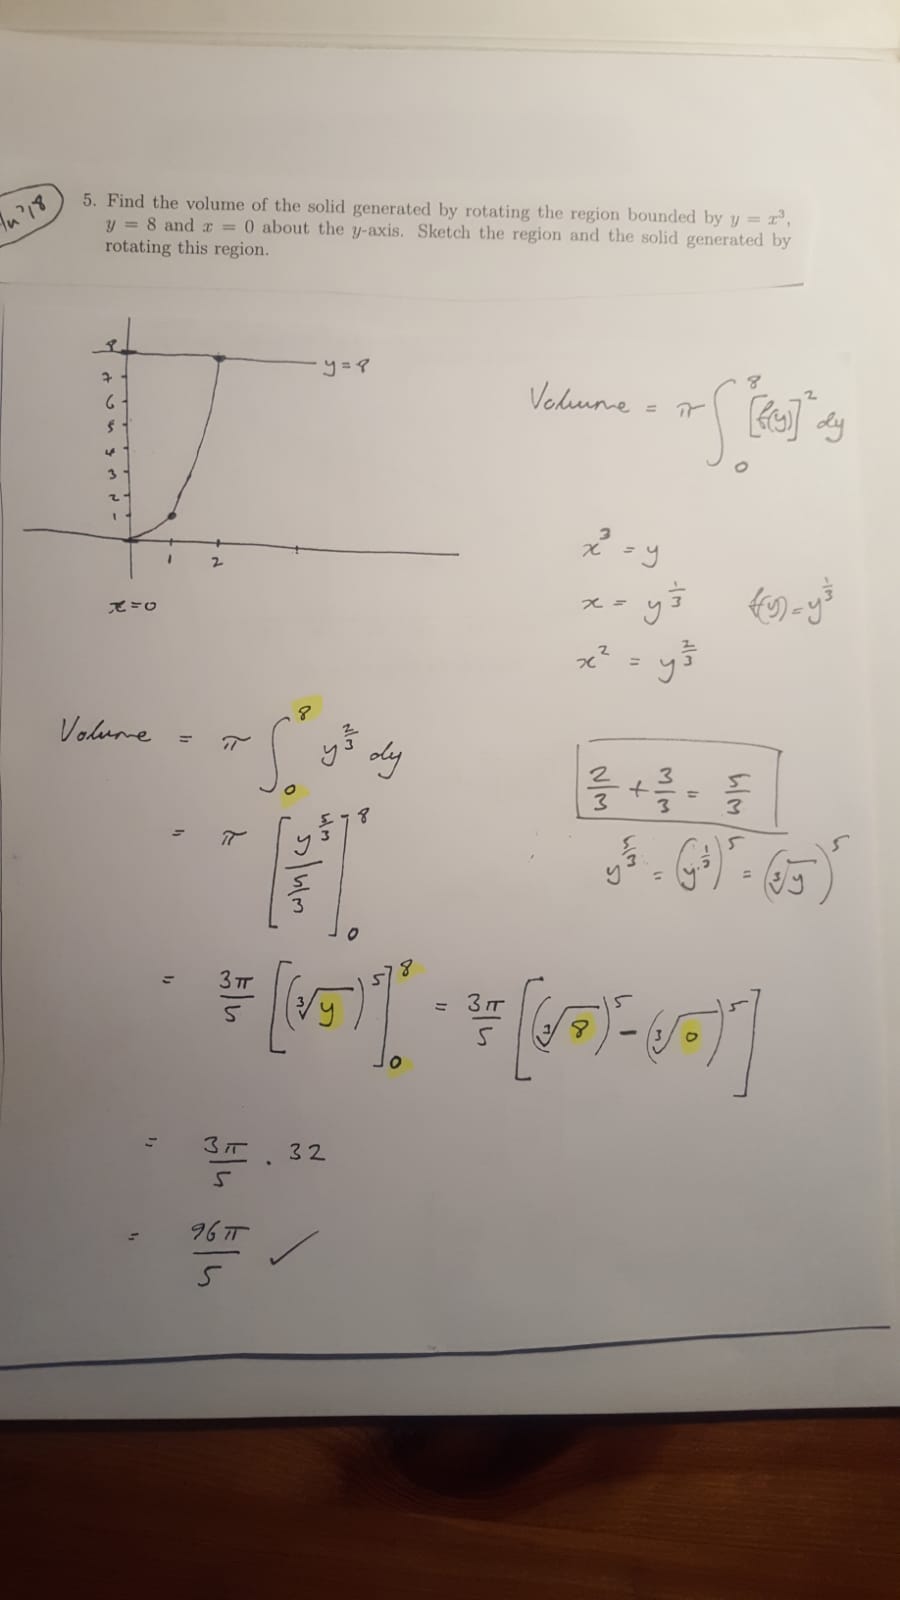 5. Find the volume of the solid generated by rotating the region bounded by y = x³,
y = 8 and x = 0 about the y-axis. Sketch the region and the solid generated by
rotating this region.
8
7
6
5
4
3
2
1
y=8
1 2
x=0
Volume = π ∫₀⁸ [f(y)]² dy
x³ = y
x = y^(1/3) f(y) = y^(1/3)
x² = y^(2/3)
Volume = π ∫₀⁸ y^(2/3) dy
2/3 + 3/3 = 5/3
= π [y^(5/3) / (5/3)]₀⁸
y^(5/3) = (y^(1/3))⁵ = (∛y)⁵
= 3π/5 [(∛y)⁵]₀⁸ = 3π/5 [(∛8)⁵ - (∛0)⁵]
= 3π/5 . 32
= 96π/5 ✓